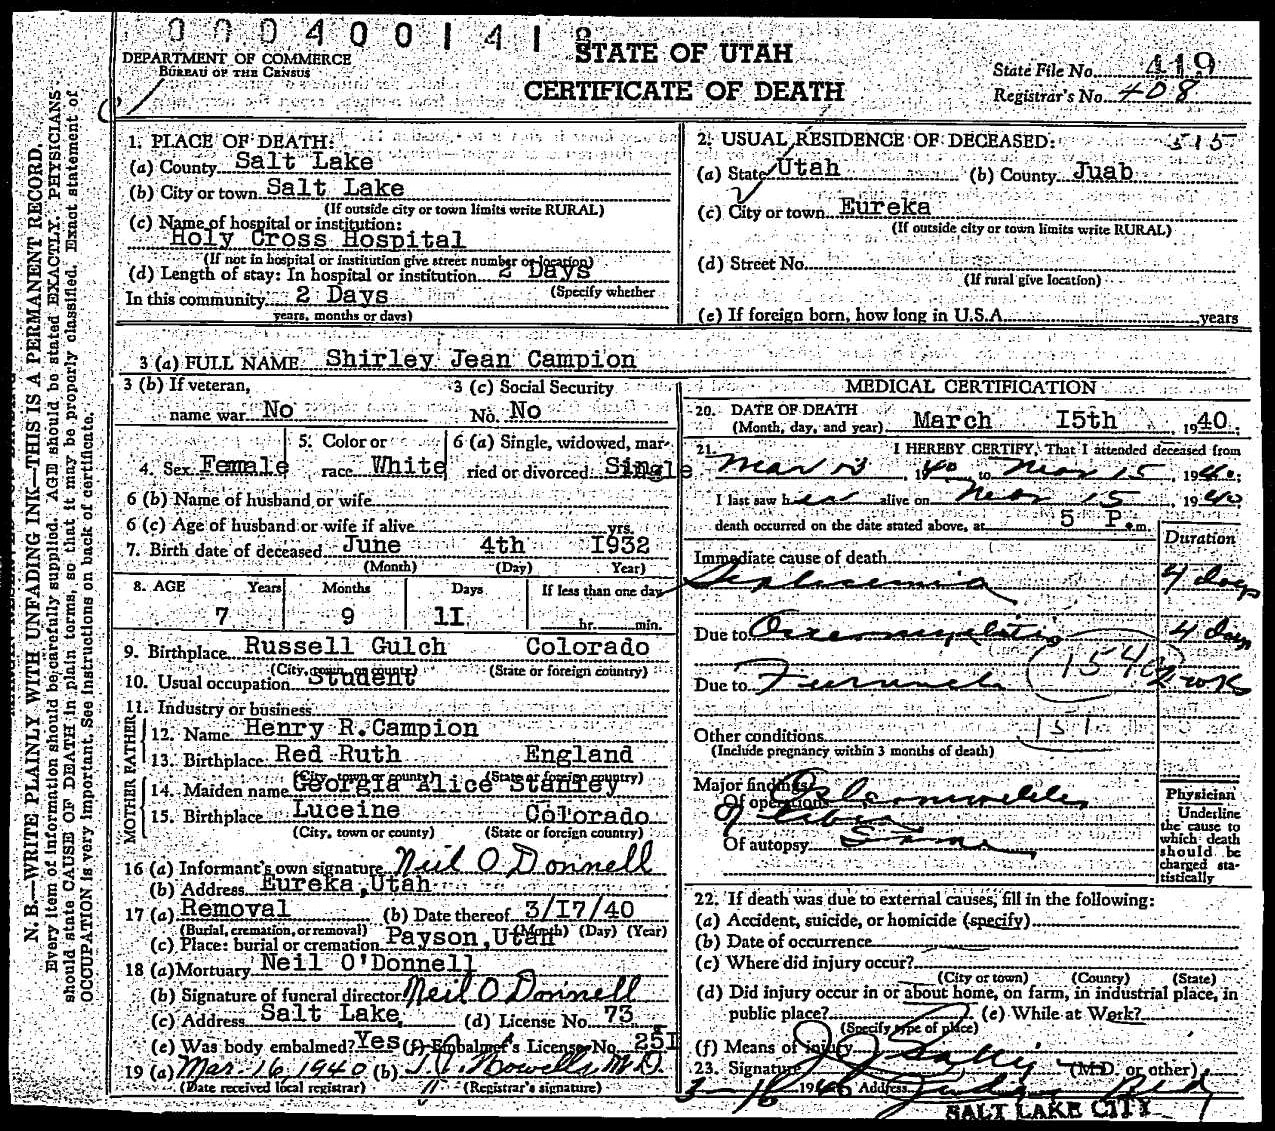 0004001418
STATE OF UTAH
CERTIFICATE OF DEATH
DEPARTMENT OF COMMERCE
BUREAU OF THE CENSUS
State File No. 419
Registrar's No. 408
N. B.—WRITE PLAINLY WITH UNFADING INK—THIS IS A PERMANENT RECORD.
Every item of information should be carefully supplied. AGE should be stated EXACTLY. PHYSICIANS
should state CAUSE OF DEATH in plain terms, so that it may be properly classified. Exact statement of
OCCUPATION is very important. See instructions on back of certificate.
1. PLACE OF DEATH:
(a) County Salt Lake
(b) City or town Salt Lake
(If outside city or town limits write RURAL)
(c) Name of hospital or institution:
Holy Cross Hospital
(If not in hospital or institution give street number or location)
(d) Length of stay: In hospital or institution 2 Days
(Specify whether
In this community 2 Days
years, months or days)
2. USUAL RESIDENCE OF DECEASED: 515
(a) State Utah (b) County Juab
(c) City or town Eureka
(If outside city or town limits write RURAL)
(d) Street No.
(If rural give location)
(e) If foreign born, how long in U.S.A. years
3 (a) FULL NAME Shirley Jean Campion
3 (b) If veteran, 3 (c) Social Security
name war No No. No
4. Sex Female 5. Color or race White 6 (a) Single, widowed, married or divorced Single
6 (b) Name of husband or wife
6 (c) Age of husband or wife if alive yrs.
7. Birth date of deceased June 4th I932
(Month) (Day) Year)
8. AGE Years Months Days If less than one day
7 9 1I hr. min.
9. Birthplace Russell Gulch Colorado
(City, town, or county) (State or foreign country)
10. Usual occupation Student
11. Industry or business
FATHER
12. Name Henry R. Campion
13. Birthplace Red Ruth England
(City, town or county) (State or foreign country)
MOTHER
14. Maiden name Georgia Alice Stanley
15. Birthplace Luceine Colorado
(City, town or county) (State or foreign country)
16 (a) Informant's own signature Neil O Donnell
(b) Address Eureka, Utah
17 (a) Removal (b) Date thereof 3/I7/40
(Burial, cremation, or removal) (Month) (Day) (Year)
(c) Place: burial or cremation Payson, Utah
18 (a) Mortuary Neil O'Donnell
(b) Signature of funeral director Neil O Donnell
(c) Address Salt Lake, (d) License No. 73
(e) Was body embalmed? Yes (f) Embalmer's License No. 25I
19 (a) Mar. 16, 1940 (b) T. J. Howells, M.D.
(Date received local registrar) (Registrar's signature)
MEDICAL CERTIFICATION
20. DATE OF DEATH
(Month, day, and year) March I5th, 1940;
21. I HEREBY CERTIFY, That I attended deceased from
Mar 13, 1940 to Mar 15, 1940;
I last saw her alive on Mar 15, 1940
death occurred on the date stated above, at 5 P.m.
Duration
Immediate cause of death
Septicemia 4 days
Due to Osteomyelitis 4 days
154a
Due to Furuncle 2 wks
151
Other conditions
(Include pregnancy within 3 months of death)
Major findings:
Of operations Osteomyelitis
of tibia
Of autopsy Same
Physician
Underline
the cause to
which death
should be
charged statistically
22. If death was due to external causes, fill in the following:
(a) Accident, suicide, or homicide (specify)
(b) Date of occurrence
(c) Where did injury occur?
(City or town) (County) (State)
(d) Did injury occur in or about home, on farm, in industrial place, in
public place? (e) While at Work?
(Specify type of place)
(f) Means of injury
23. Signature (M.D. or other)
3-16 1940 Address Judge Bldg
SALT LAKE CITY